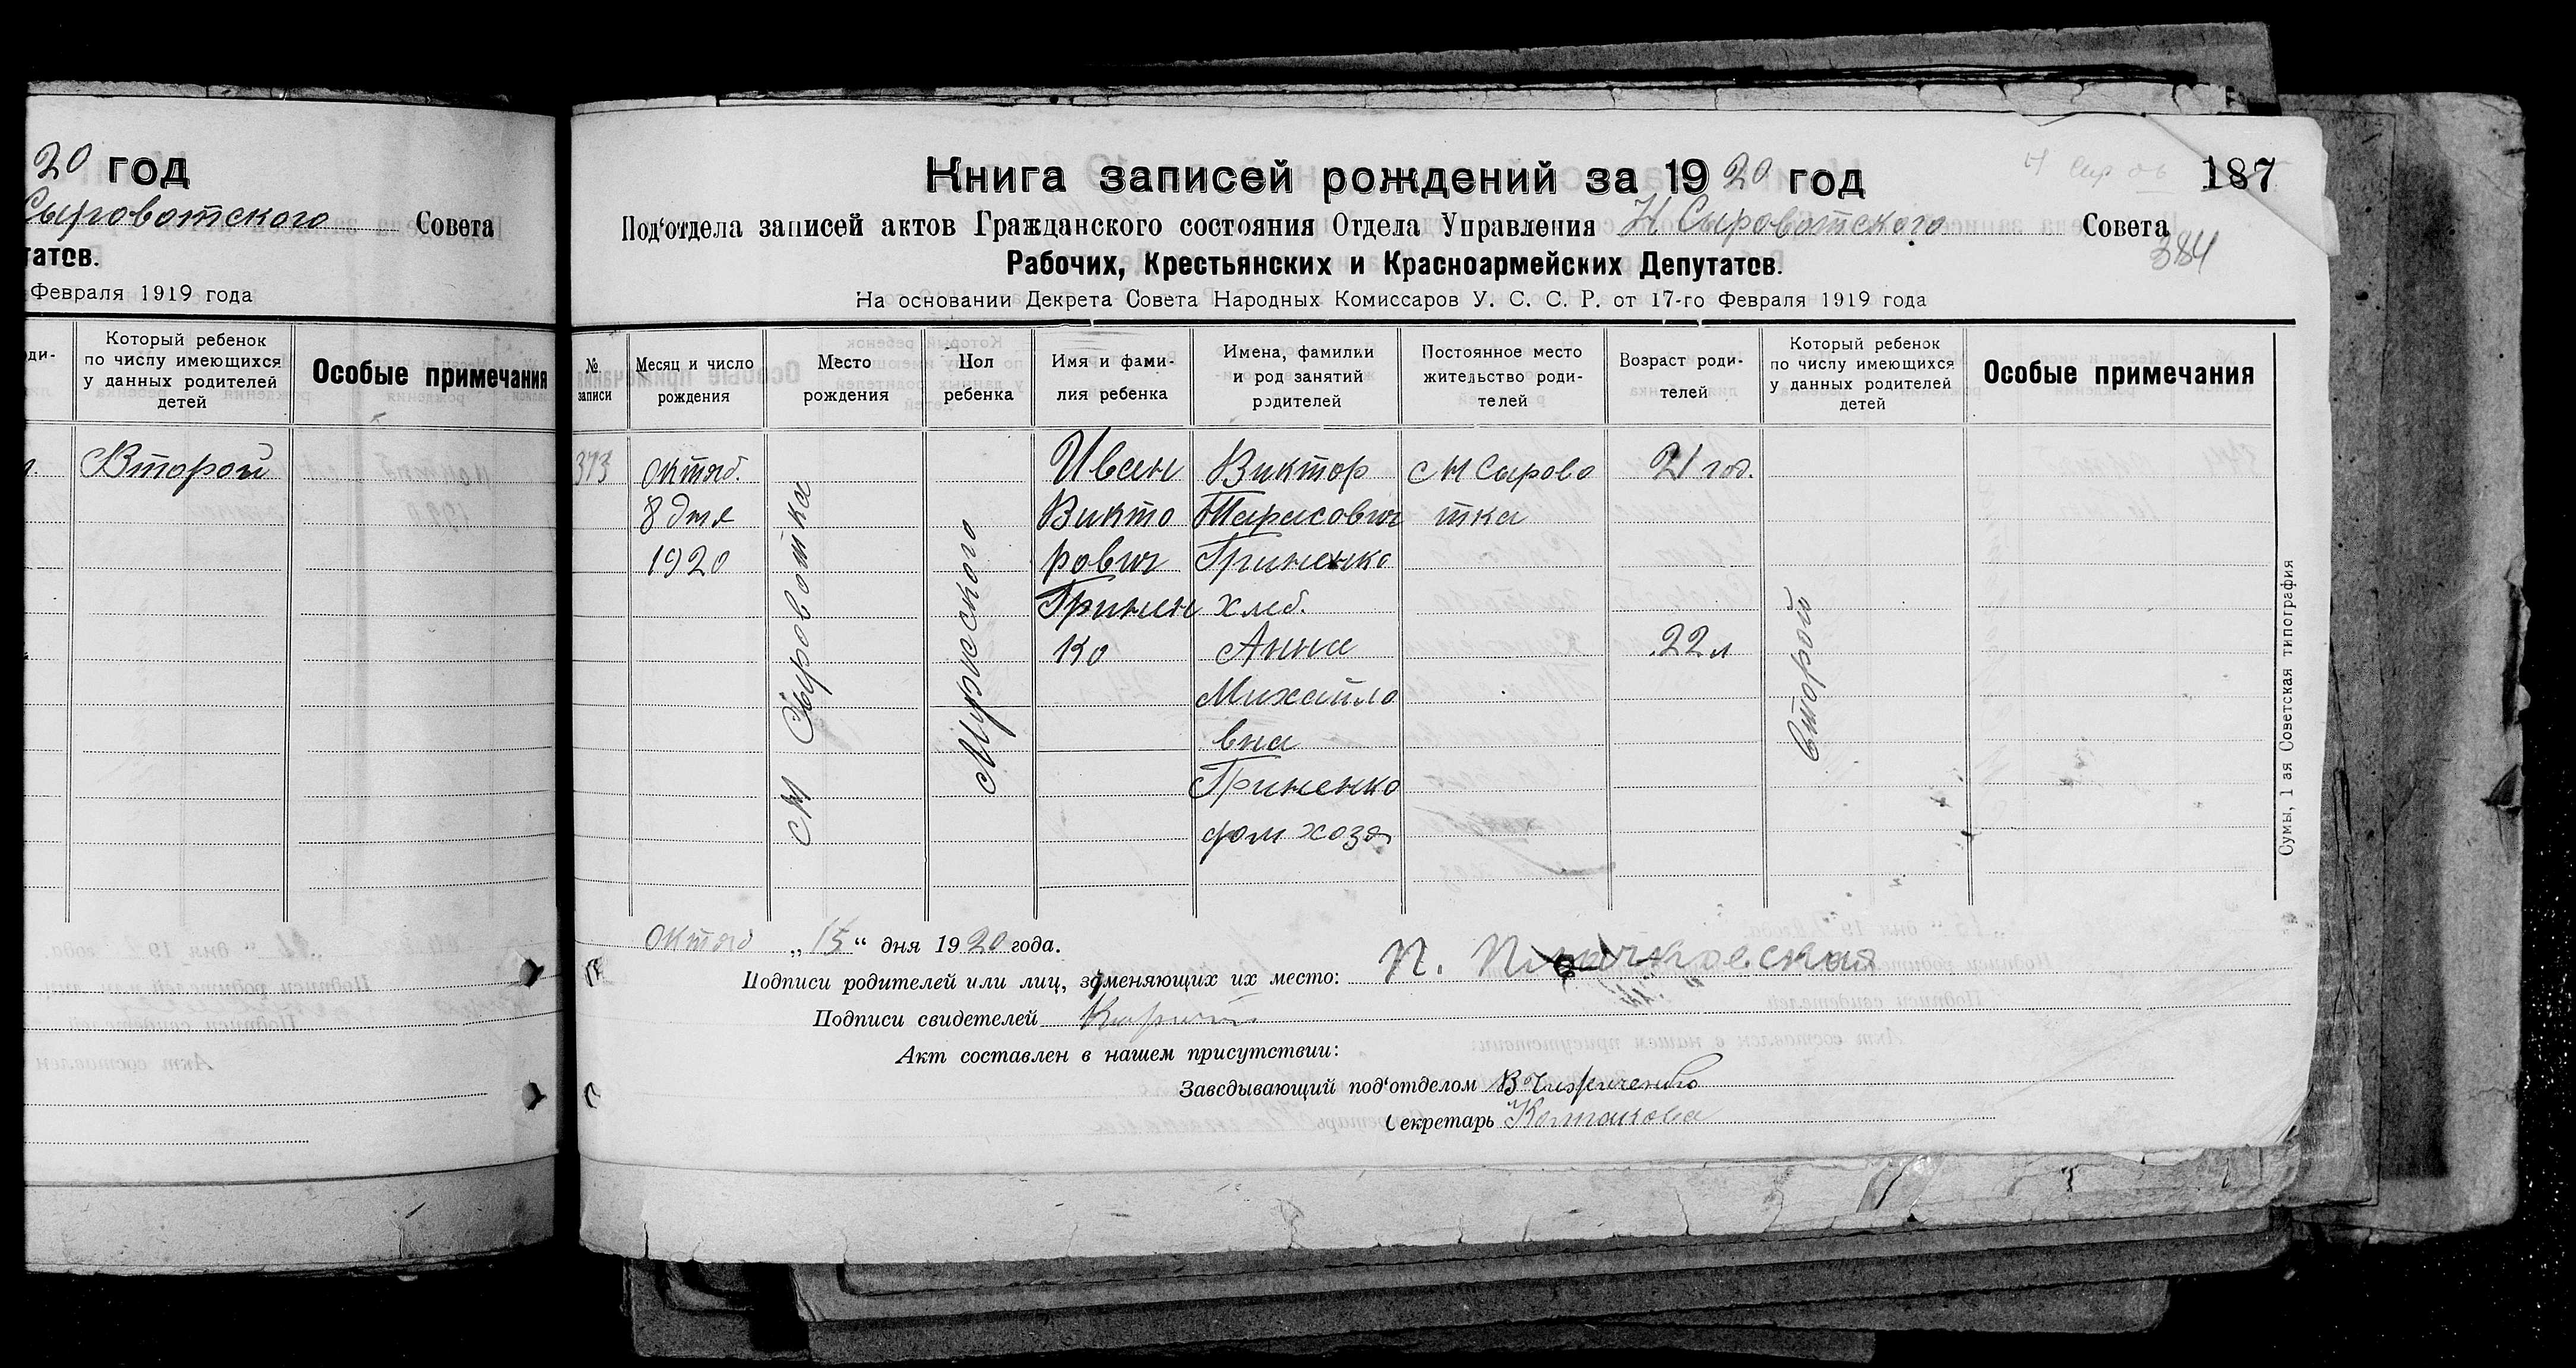 20 год
Сыроватского Совета
татов.
Февраля 1919 года
оди-
Который ребенок
по числу имеющихся
у данных родителей
детей
Особые примечания
Второй
187
384
Книга записей рождений за 1920 год
Под'отдела записей актов Гражданского состояния Отдела Управления Н Сыроватского Совета
Рабочих, Крестьянских и Красноармейских Депутатов.
На основании Декрета Совета Народных Комиссаров У. С. С. Р. от 17-го Февраля 1919 года
№
записи
Месяц и число
рождения
Место
рождения
Пол
ребенка
Имя и фами-
лия ребенка
Имена, фамилии
и род занятий
родителей
Постоянное место
жительство роди-
телей
Возраст роди-
телей
Который ребенок
по числу имеющихся
у данных родителей
детей
Особые примечания
373
Октяб.
8 дня
1920
Н Сыроватка
Мужеского
Ивен
Викто
рович
Гринен
ко
Виктор
Тарасович
Гриненко
хлеб.
Анна
Михайло
вна
Гриненко
дом хозя
с Н Сырова
тка
21 год.
22 л
Второй
Октяб „15“ дня 1920 года.
Подписи родителей или лиц, заменяющих их место: П.
Подписи свидетелей
Акт составлен в нашем присутствии:
Заведывающий под'отделом
Секретарь
Сумы, 1 ая Советская типография